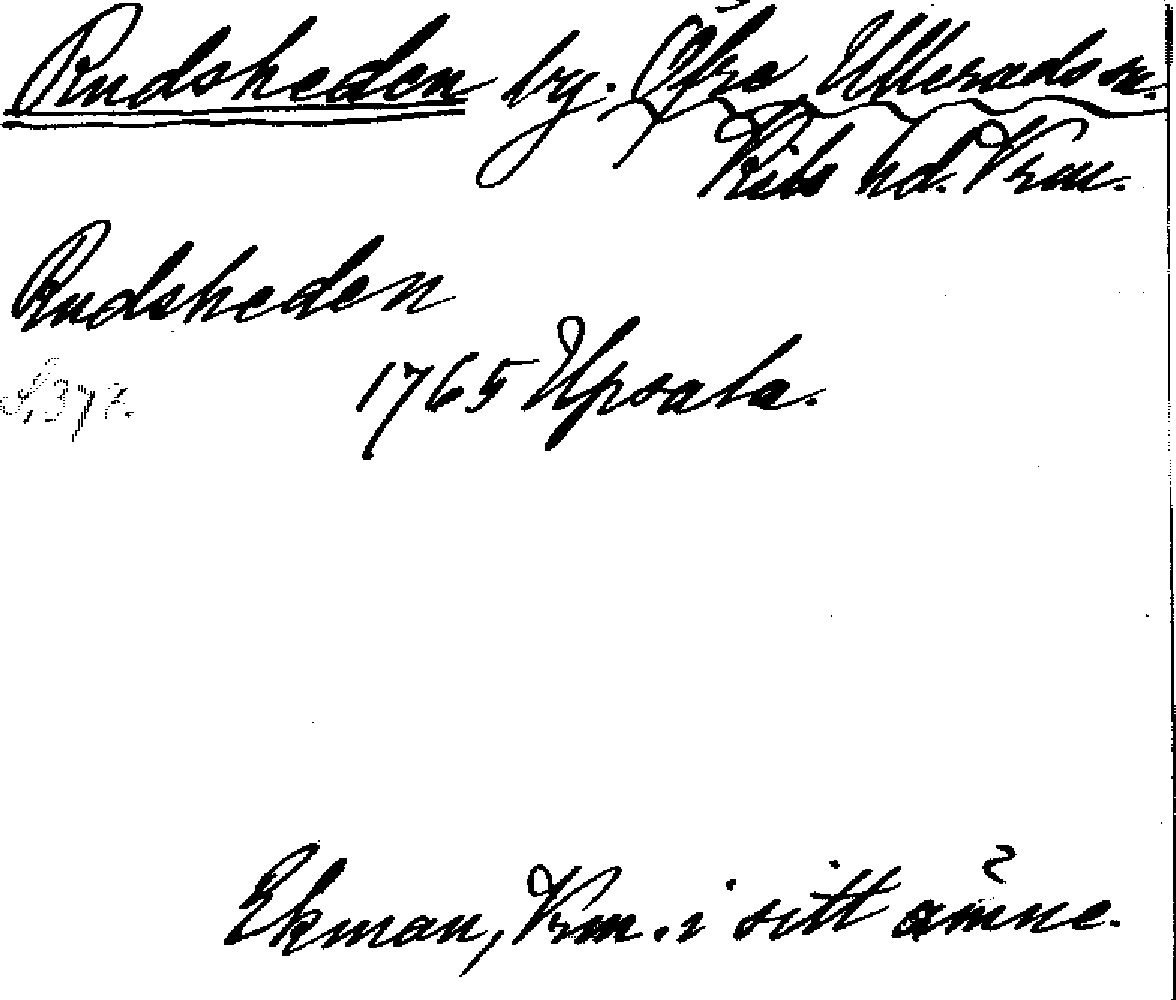 Rudsheden by. Öfre Ulleruds sn.
Kils hd. Vrm.
Rudsheden
S. 377.
1765 Upsala.
Ekman, Vrm. i sitt ämne.